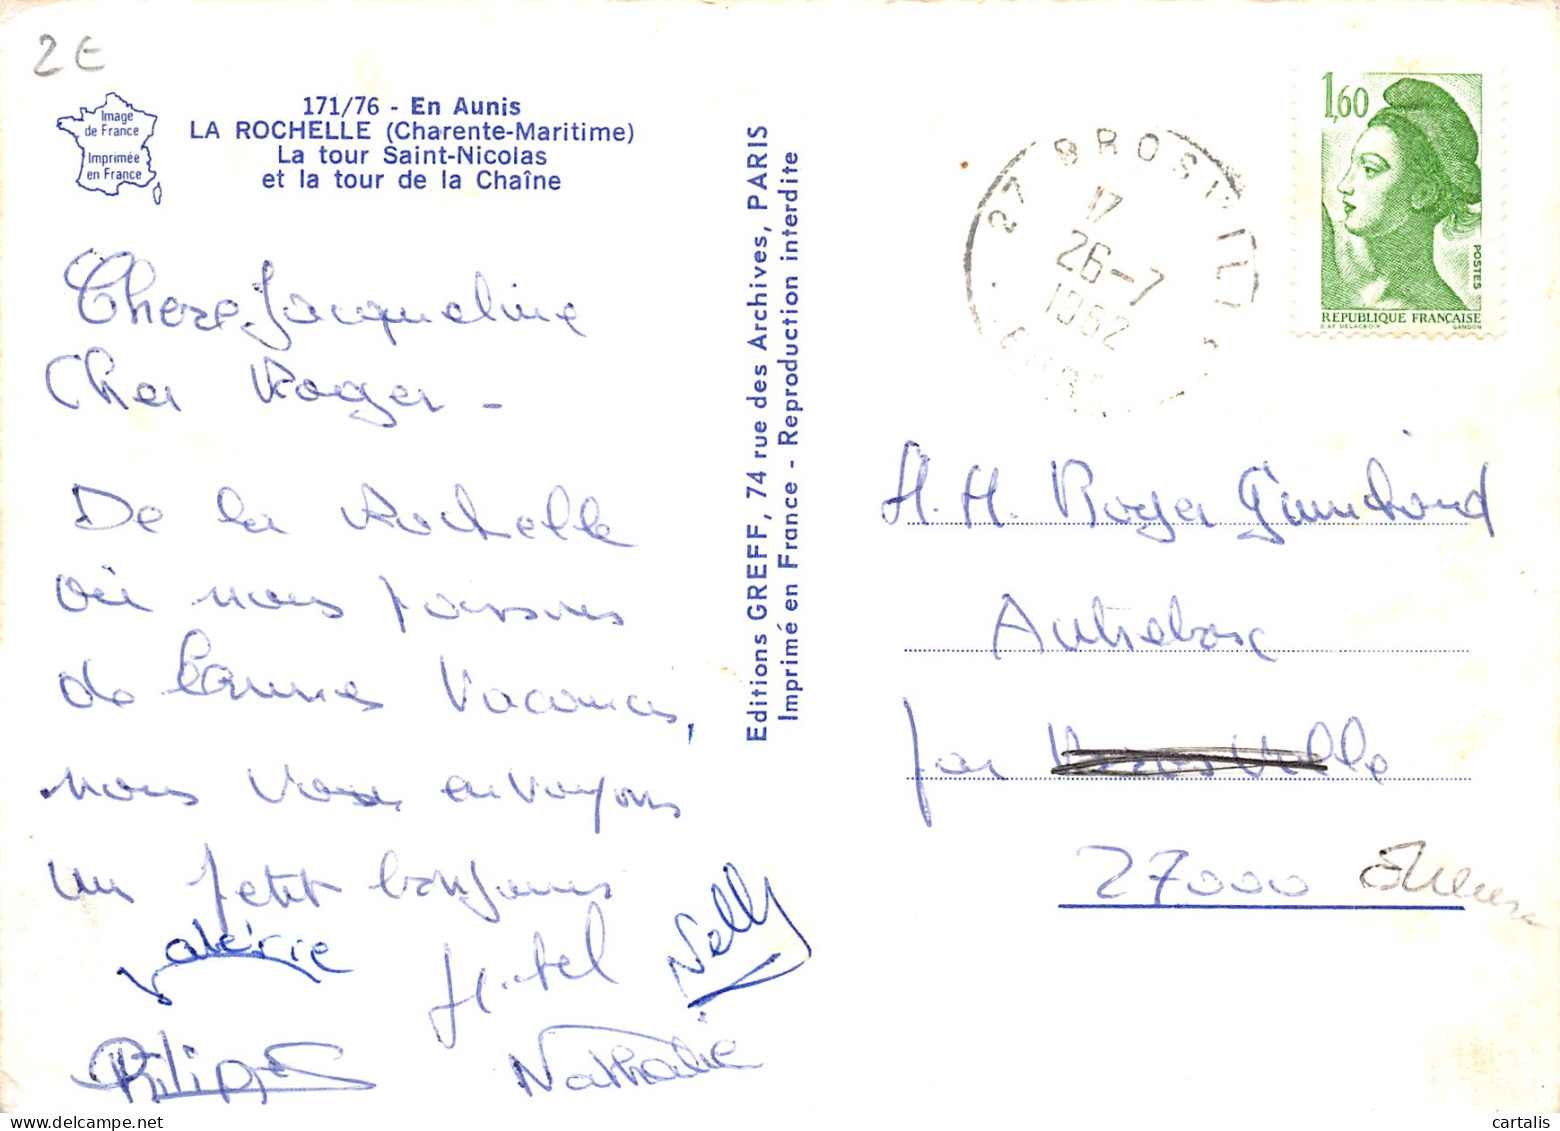 2 €
Image
de France
Imprimée
en France
171/76 - En Aunis
LA ROCHELLE (Charente-Maritime)
La tour Saint-Nicolas
et la tour de la Chaîne
Chere Jacqueline
Cher Roger -
De la Rochelle
où nous passons
de bonnes vacances,
nous vous envoyons
un petit bonjour
Valérie
Nelly
Philippe
Nathalie
Editions GREFF, 74 rue des Archives, PARIS
Imprimé en France - Reproduction interdite
27 BROSVILLE
17
26-7
1982
EURE
1,60
POSTES
REPUBLIQUE FRANÇAISE
D'AP. DELACROIX GANDON
M. M. Roger
par
27000
cartalis